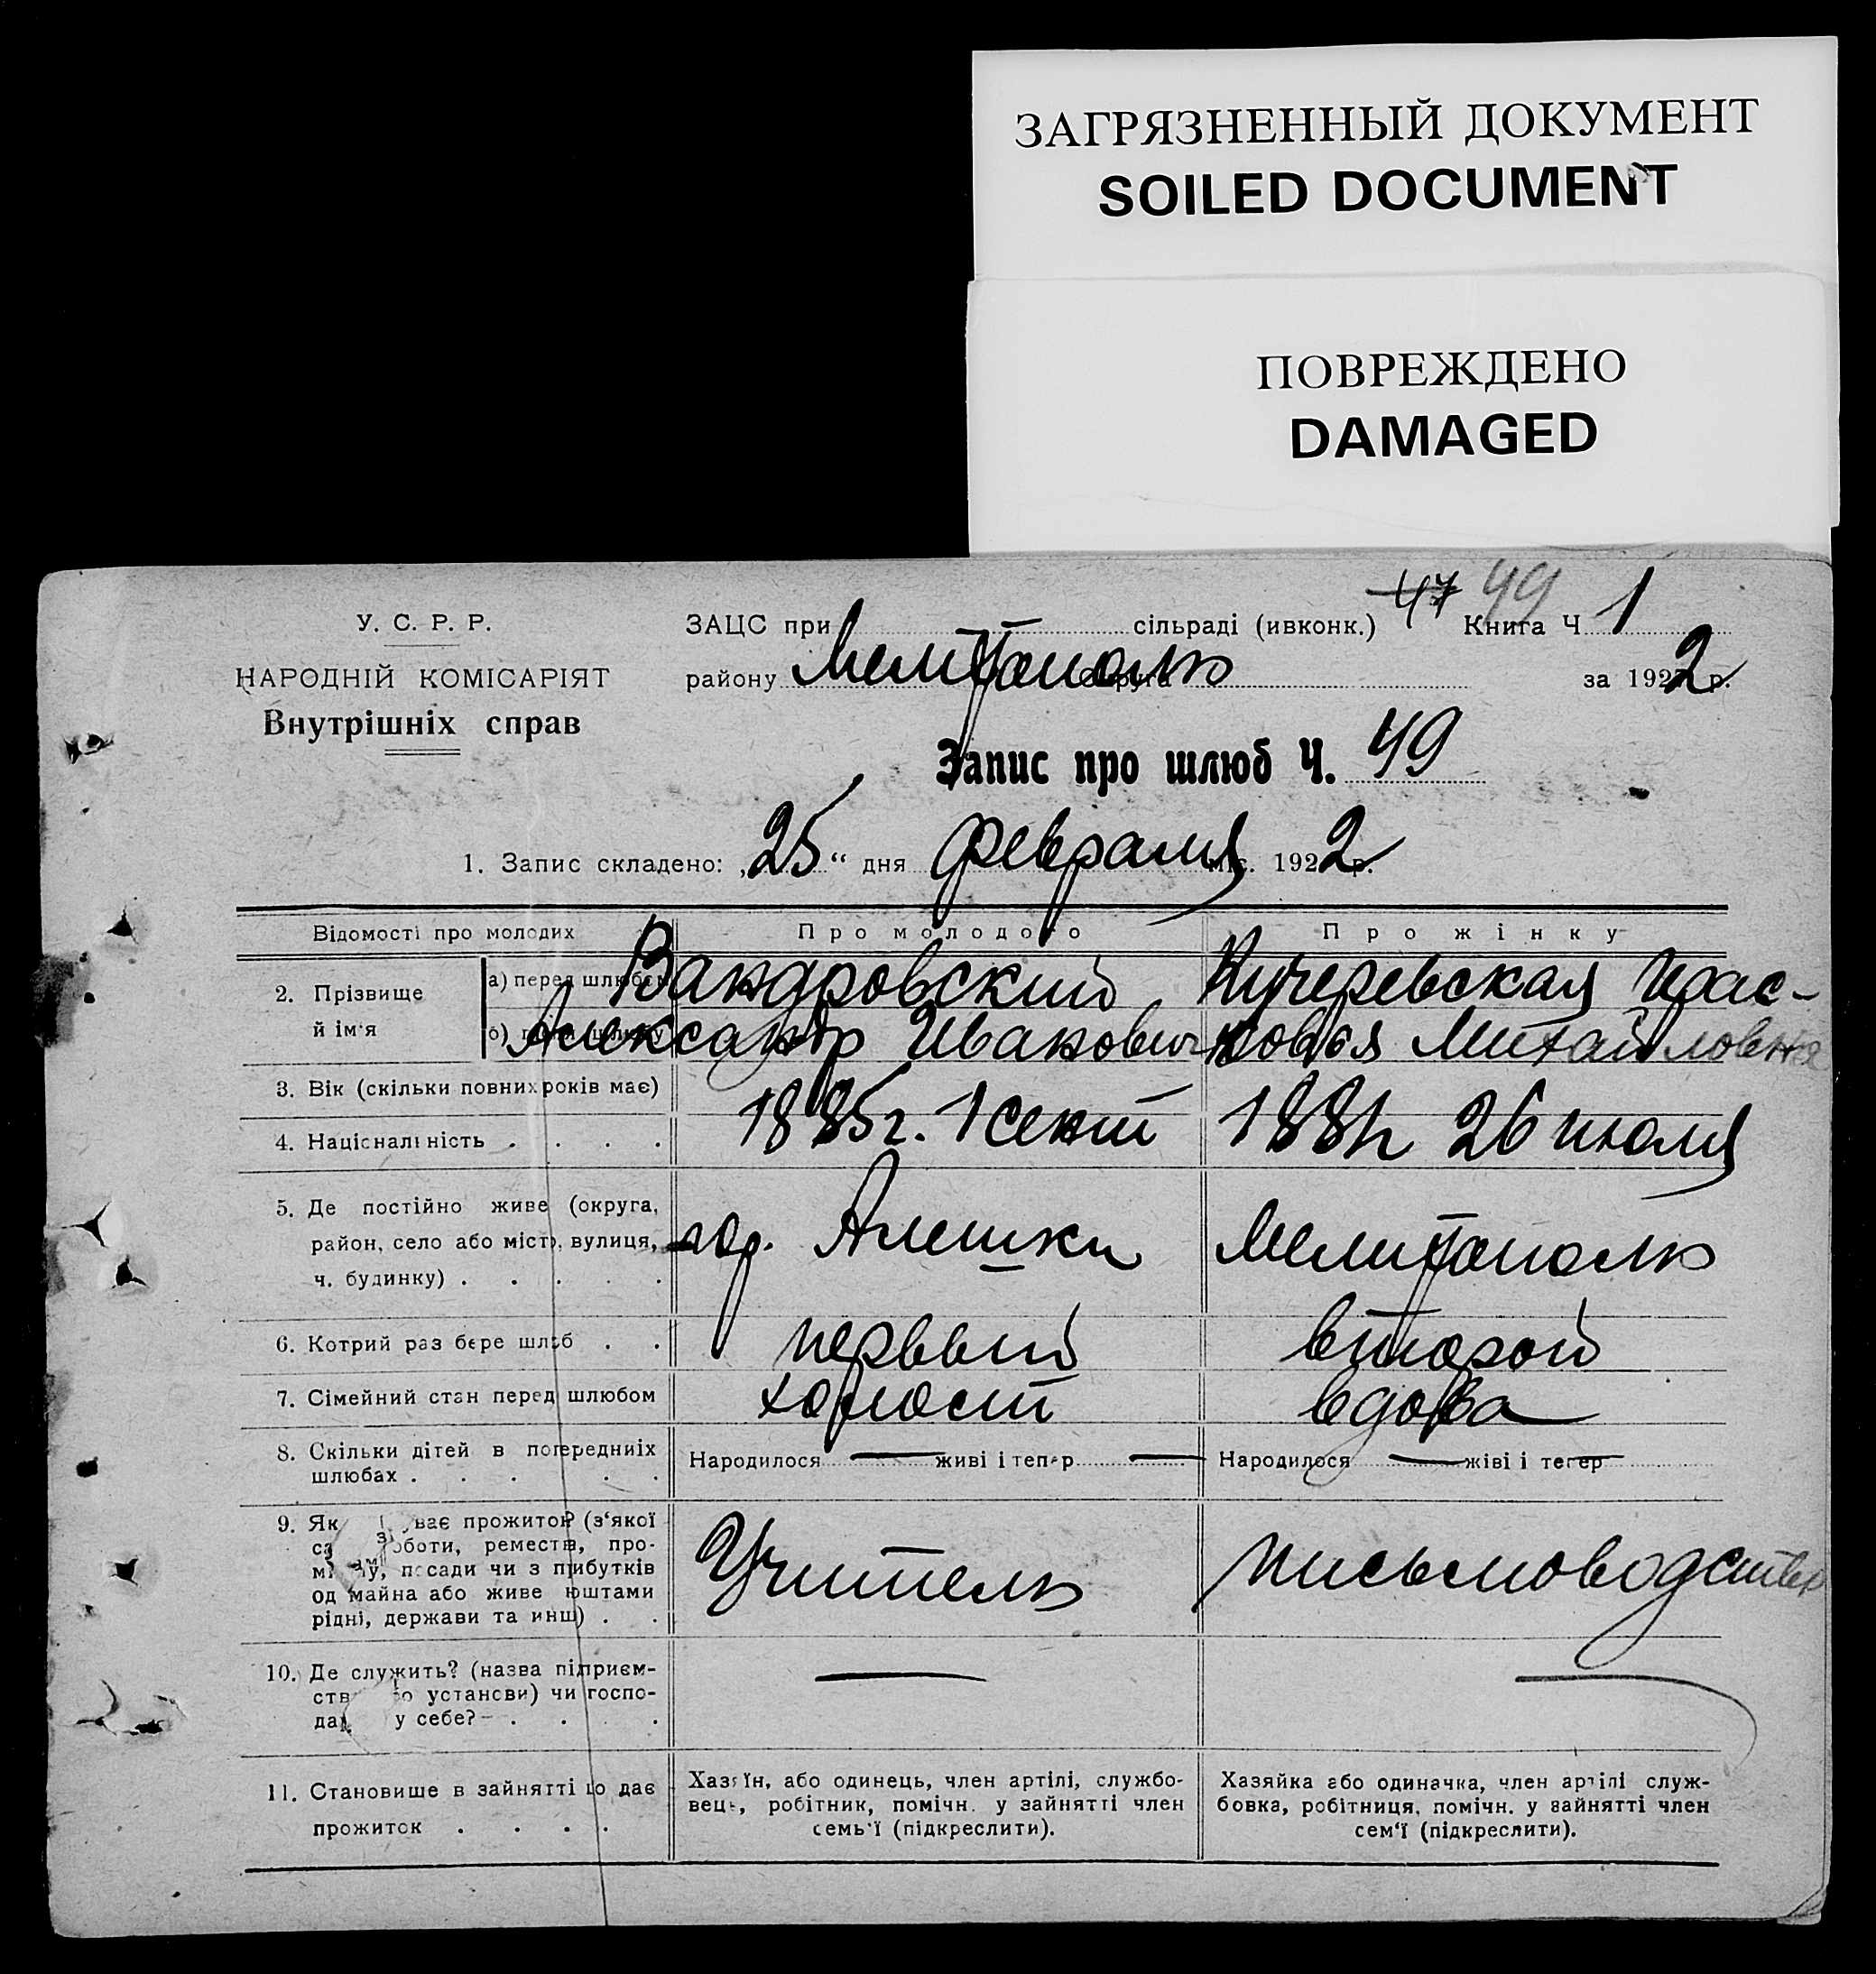 ЗАГРЯЗНЕННЫЙ ДОКУМЕНТ
SOILED DOCUMENT
ПОВРЕЖДЕНО
DAMAGED
47 49
У. С. Р. Р.
НАРОДНІЙ КОМІСАРІЯТ
Внутрішніх справ
ЗАЦС при сільраді (ивконк.) Книга Ч 1
району Мелитополь округа за 1922 р.
Запис про шлюб Ч. 49
1. Запис складено: „25“ дня февраля міс. 1922 р.
Відомості про молодих Про молодого Про жінку
2. Прізвище й ім'я а) перед шлюбом Вандровский Кучеревская Прас-
б) Александр Иванович ковья Михайловна
3. Вік (скільки повних років має)
4. Національність . . . . 1885г. 1 сент 188 26 июля
5. Де постійно живе (округа,
район, село або місто, вулиця, гор. Алешки Мелитополь
ч. будинку) . . . . .
6. Котрий раз бере шлюб . . первый второй
7. Сімейний стан перед шлюбом холост вдова
8. Скільки дітей в попередниіх Народилося — живі і тепер — Народилося — жіві і тепер —
шлюбах . . . . .
9. Як ває прожиток? (з‘якої
роботи, ремества, про-
посади чи з прибутків Учитель письмоводитель
од майна або живе коштами
рідні, держави та инш) . .
10. Де служить? (назва підприєм-
ств установи) чи госпо- — —
дар у себе? – . . .
11. Становише в зайнятті що дає Хазяїн, або одинець, член артілі, службо- Хазяйка або одиначка, член артілі служ-
вець, робітник, помічн. у зайнятті член бовка, робітниця, помічн. у зайнятті член
прожиток . . . . семь'ї (підкреслити). сем‘ї (підкреслити).